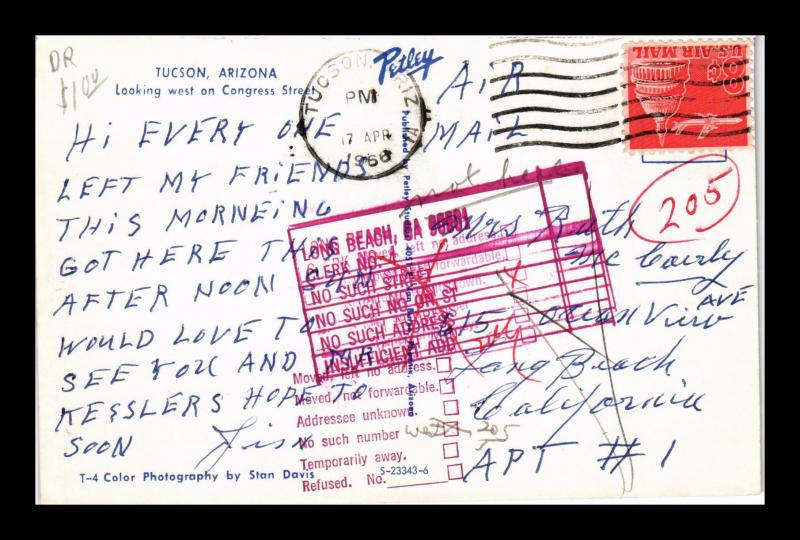 DR
$1.00
TUCSON, ARIZONA
Looking west on Congress Street
Petley
TUCSON, ARIZ.
PM
17 APR
1966
U.S. AIR MAIL
8¢
AIR
MAIL
Hi EVERY ONE
LEFT MY FRIENDS
THIS MORNEING
GOT HERE THIS
AFTER NOON SUN
WOULD LOVE TO
SEE YOU AND MR
KESSLERS HOPE TO
SOON Jim
T-4 Color Photography by Stan Davis
S-23343-6
not here
205
Mrs Ruth
Mc Courly
615 Ocean View AVE
Long Beach
California
APT #1
LONG BEACH, CA
CLERK NO.
NO SUCH STREET
NO SUCH NO ON ST
NO SUCH ADDRESS
INSUFFICIENT ADD
Moved, left no address.
Moved, not forwardable.
Addressee unknown
No such number
Temporarily away.
Refused. No.
205